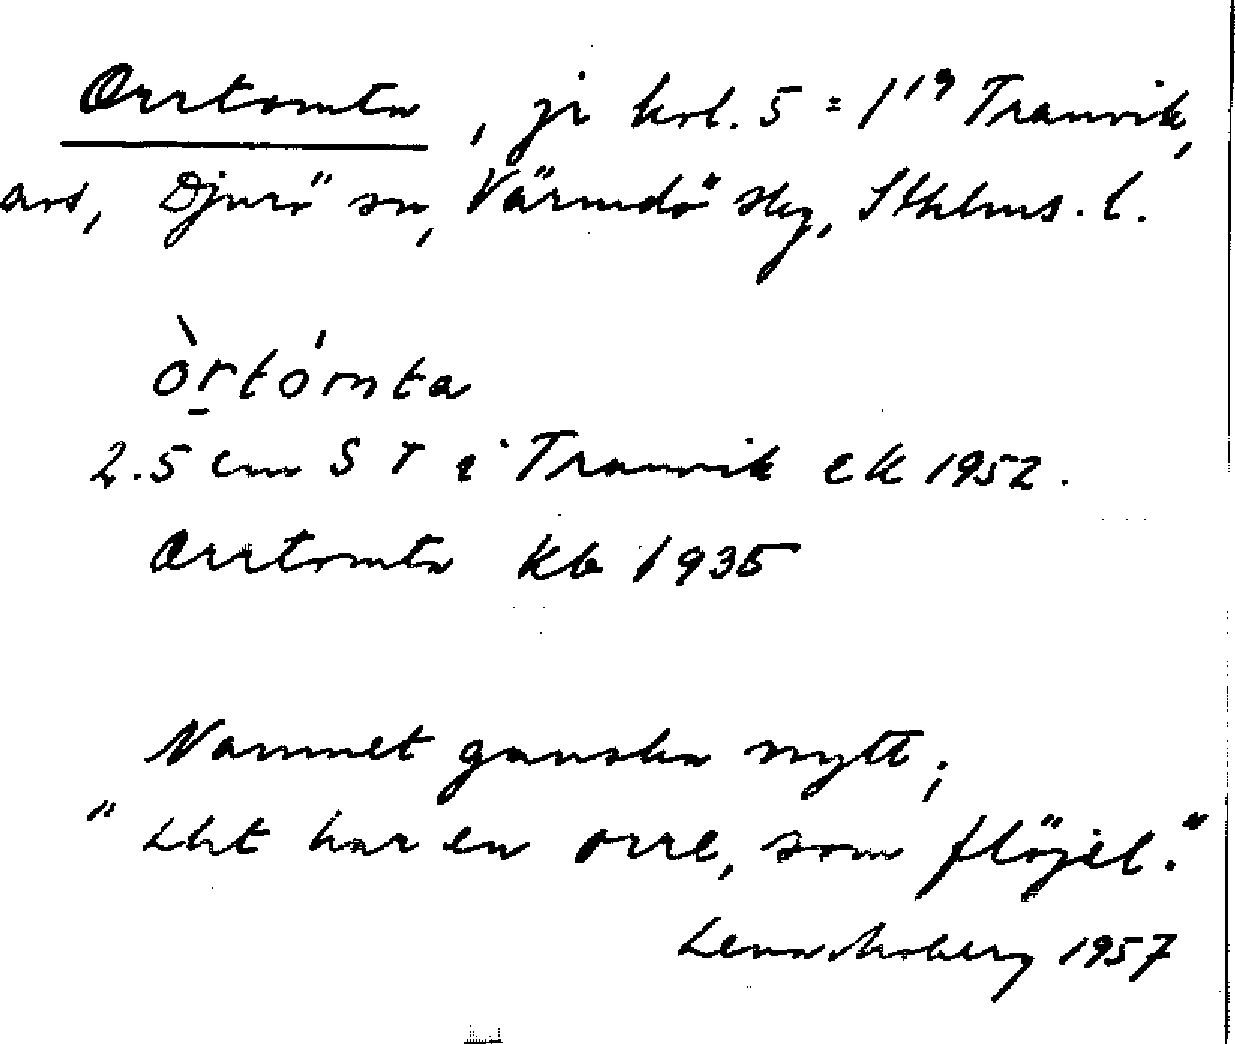 Orrtomta, jr kvl. 5 = 1¹⁹ Tranvik,
avs, Djurö sn, Värmdö skg, Sthlms. l.
òrtómta
2.5 cm S T i Tranvik ek 1952.
Orrtomta kb 1935
Namnet ganska nytt;
"Lht har en orre, som flöjel."
Lena Moberg 1957